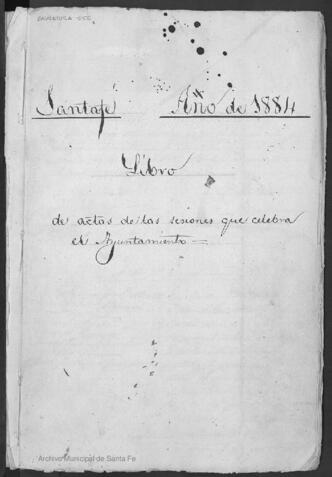 Santafé Año de 1884
Libro
de actas de las sesiones que celebra
el Ayuntamiento=
Archivo Municipal de Santa Fe